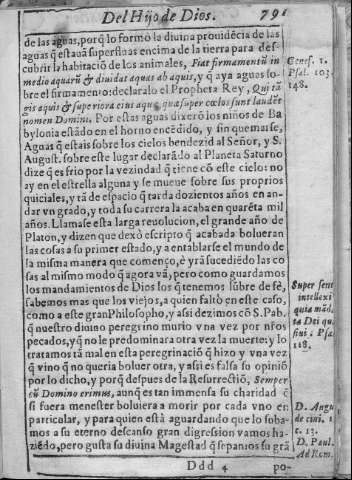 Del Hijo de Dios. 791
de las aguas, porq̃ lo formo la diuina prouidẽcia de las
aguas q̃ estauã superfluas encima de la tierra para des-
cubrir la habitaciõ de los animales, Fiat firmamentũ in
medio aquarũ & diuidat aquas ab aquis, y q̃ aya aguas so-
bre el firmamento: declaralo el Propheta Rey, Qui tã
gis aquis & superiora eius aquæ quæ super cœlos sunt laudẽt
nomen Domini. Por estas aguas dixerõ los niños de Ba
bylonia estãdo en el horno encẽdido, y sin quemarse,
Aguas q̃ estais sobre los cielos bendezid al Señor, y S.
August. sobre este lugar declarãdo al Planeta Saturno
dize q̃ es frio por la vezindad q̃ tiene cõ este cielo: no
ay en el estrella alguna y se mueue sobre sus proprios
quiciales, y tã de espacio q̃ tarda dozientos años en an-
dar vn grado, y toda su carrera la acaba en quarẽta mil
años. Llamase esta larga reuolucion, el grande año de
Platon, y dizen que dexò escripto q̃ acabada bolueran
las cosas a su primer estado, y a entablarse el mundo de
la misma manera que començo, è yrã sucediẽdo las co
sas al mismo modo q̃ agora vã, pero como guardamos
los mandamientos de Dios los q̃ tenemos lũbre de fè,
sabemos mas que los viejos, a quien faltò en este caso,
como a este gran Philosopho, y assi dezimos cõ S. Pab.
q̃ nuestro diuino peregrino murio vna vez por nr̃os
pecados, y q̃ no le predominara otra vez la muerte: y lo
tratamos tã mal en esta peregrinaciõ q̃ hizo y vna vez
q̃ vino q̃ no queria boluer otra, y assi es falsa su opiniõ
por lo dicho, y porq̃ despues de la Resurrectiõ, Semper
cũ Domino erimus, aunq̃ es tan immensa su charidad q̃
si fuera menester boluiera a morir por cada vno en
particular, y para quien està aguardando que lo suba-
mos a su eterno descanso gran digression vamos ha-
ziẽdo, pero gusta su diuina Magestad q̃ sepaniós su grã
Ddd 4 po-
Genes. 1.
Psal. 103.
148.
Super sene
intellexi
quia mãd.
ta Dei qu.
siui. Psa.
118.
D. Augu
de ciui. l
c. 13.
D. Paul.
Ad Rom.